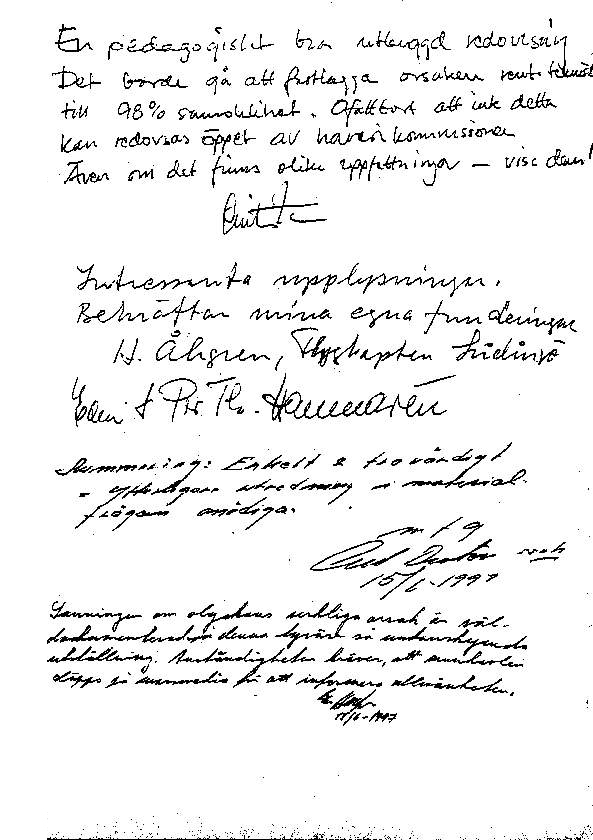 En pedagogiskt bra utbyggd redovisning
Det borde gå att fastlägga orsaken rent tekniskt
till 98% sannolikhet. Ofattbart att ink detta
kan redovisas öppet av haverikommissionen
Även om det finns olika uppfattningar – visa dem!
Intressanta upplysningar.
Bekräftar mina egna funderingar
H. Åhgren, Flygkapten Lidingö
Per Th. Hammarén
Summering: Enkelt & trovärdigt
= ytterligare utredning i material-
frågan onödiga.
15/6-1997
Sanningen om olyckans verkliga orsak är väl-
dokumenterad i denna
utställning. Anständigheten kräver, att
släpps på för att informera allmänheten.
15/6-1997